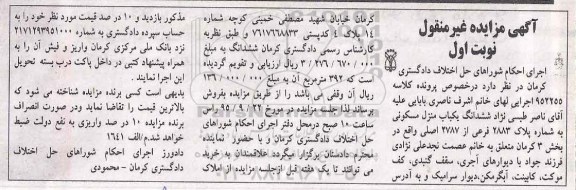 آگهی مزایده غیرمنقول
نوبت اول
اجرای احکام شوراهای حل اختلاف دادگستری
کرمان در نظر دارد درخصوص پرونده کلاسه
۹۵۲۲۵۵ اجرایی لهای خانم اشرف ناصری بابایی علیه
آقای ناصر طیبی نژاد ششدانگ یکباب منزل مسکونی
به شماره پلاک ۲۸۸۳ فرعی از ۲۷۸۷ اصلی واقع در
بخش ۳ کرمان متعلق به خانم عصمت نجدعلی نژادی
فرزند جواد با دیوارهای آجری، سقف گنبدی، کف
موکت، کابینت، آبگرمکن، دیوار سرامیک و به آدرس
کرمان خیابان شهید مصطفی خمینی کوچه شماره
۱۴ پلاک ۴ کدپستی ۷۶۱۷۶۶۸۸۳۳ و طبق نظریه
کارشناس رسمی دادگستری کرمان ششدانگ به مبلغ
۳/۲۷۶/۶۷۰/۰۰۰ ریال ارزیابی و تقویم گردیده
است که ۳۹۲ مترمربع آن به مبلغ ۱۳۶/۰۰۰/۰۰۰
ریال آن وقفی می باشد را از طریق مزایده بفروش
برساند لذا جلسه مزایده در مورخ ۹۵/۹/۲۲ راس
ساعت ۱۰ صبح درمحل دفتر اجرای احکام شوراهای
حل اختلاف دادگستری کرمان و با حضور نماینده
محترم دادستان برگزار میگردد علاقمندان به خرید
می توانند تا یک هفته قبل ازجلسه مزایده از املاک
مذکور بازدید و ۱۰ در صد قیمت مورد نظر خود را به
حساب سپرده دادگستری به شماره ۲۱۷۱۲۹۳۹۵۱۰۰۰
نزد بانک ملی مرکزی کرمان واریز و فیش آن را به
همراه پیشنهاد کتبی در داخل پاکت درب بسته تحویل
این اجرا نمایند.
بدیهی است کسی برنده مزایده شناخته می شود که
بالاترین قیمت را تقاضا نماید ودر صورت انصراف
برنده مزایده ۱۰ در صد واریزی به نفع دولت ضبط
خواهد شد. م الف ۱۶۴۱
دادورز اجرای احکام شوراهای حل اختلاف
دادگستری کرمان - محمودی